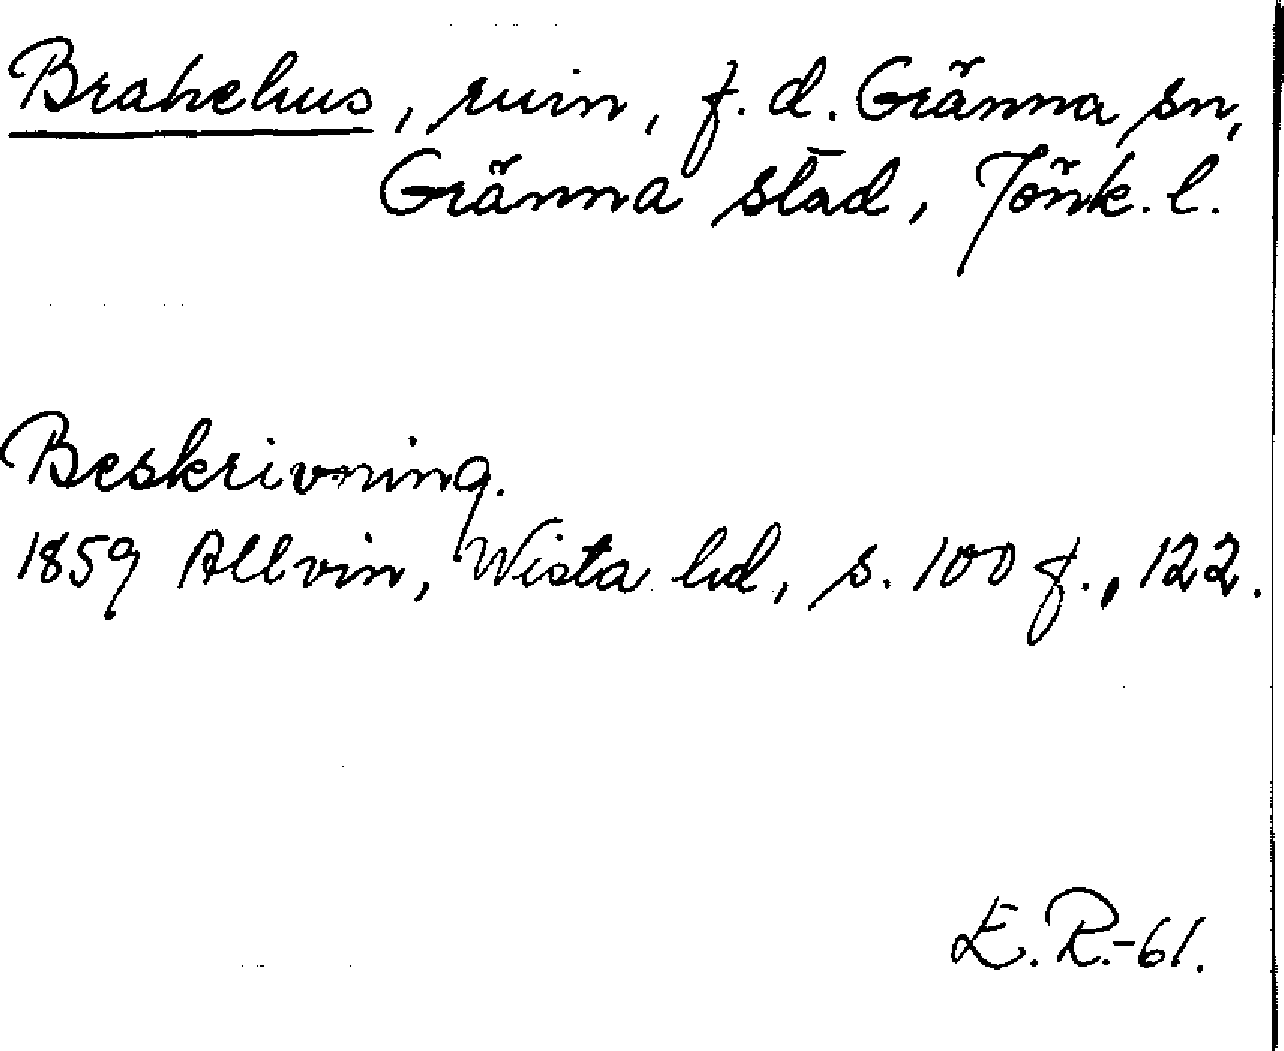 Brahehus, ruin, f. d. Gränna sn,
Gränna stad, Jönk. l.
Beskrivning.
1859 Allvin, Wista hd, s. 100 f., 122.
E. R.-61.